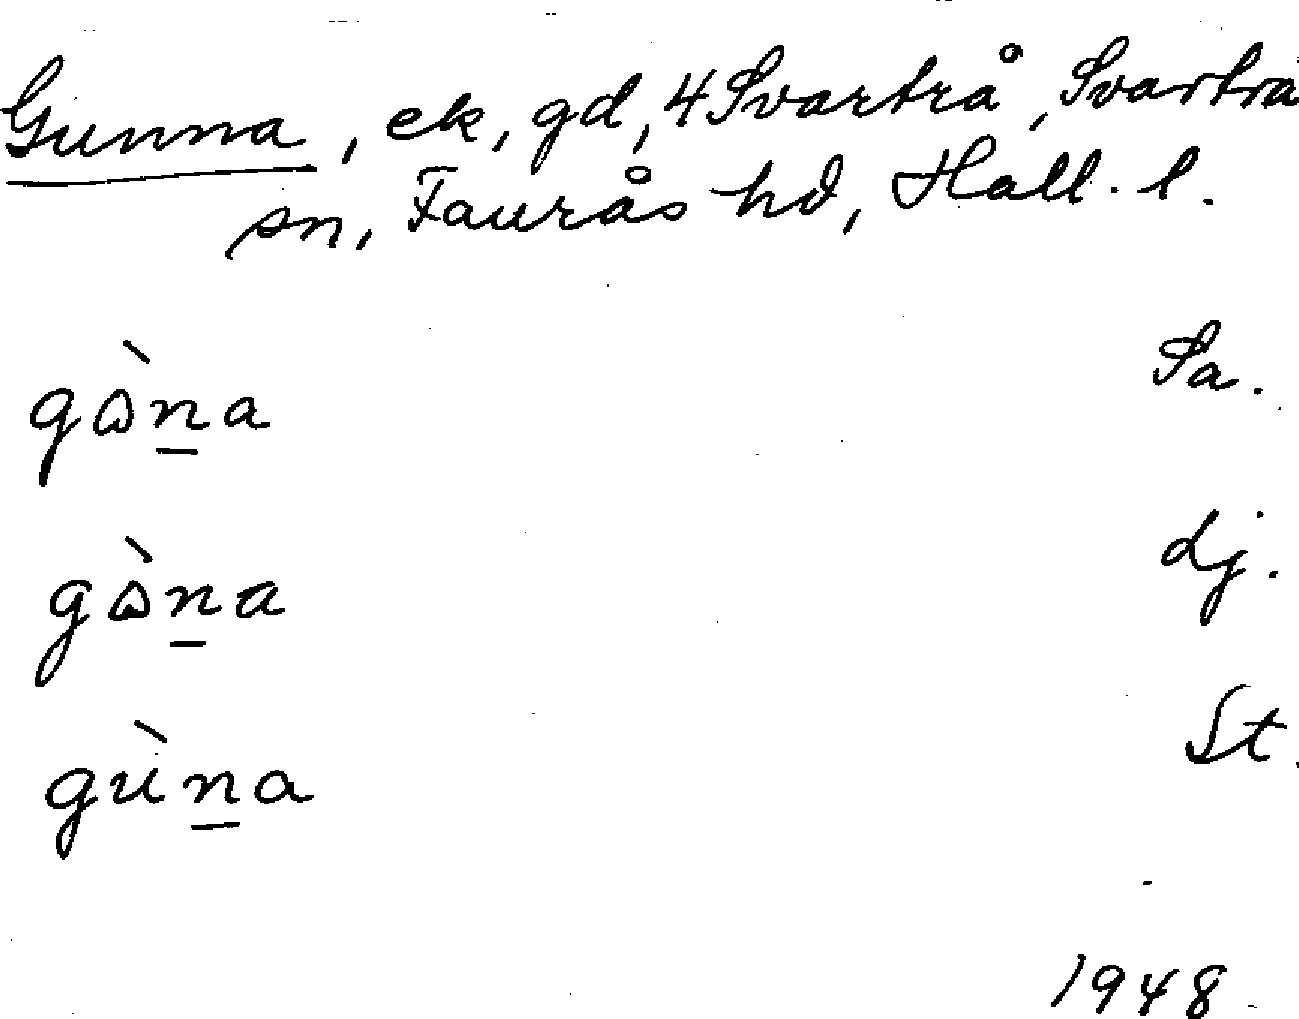 Gunna, ek, gd, 4 Svartrå, Svartra
sn, Faurås hd, Hall. l.
gὼn̲a Sa.
gὼn̲a dj.
gùn̲a St.
1948